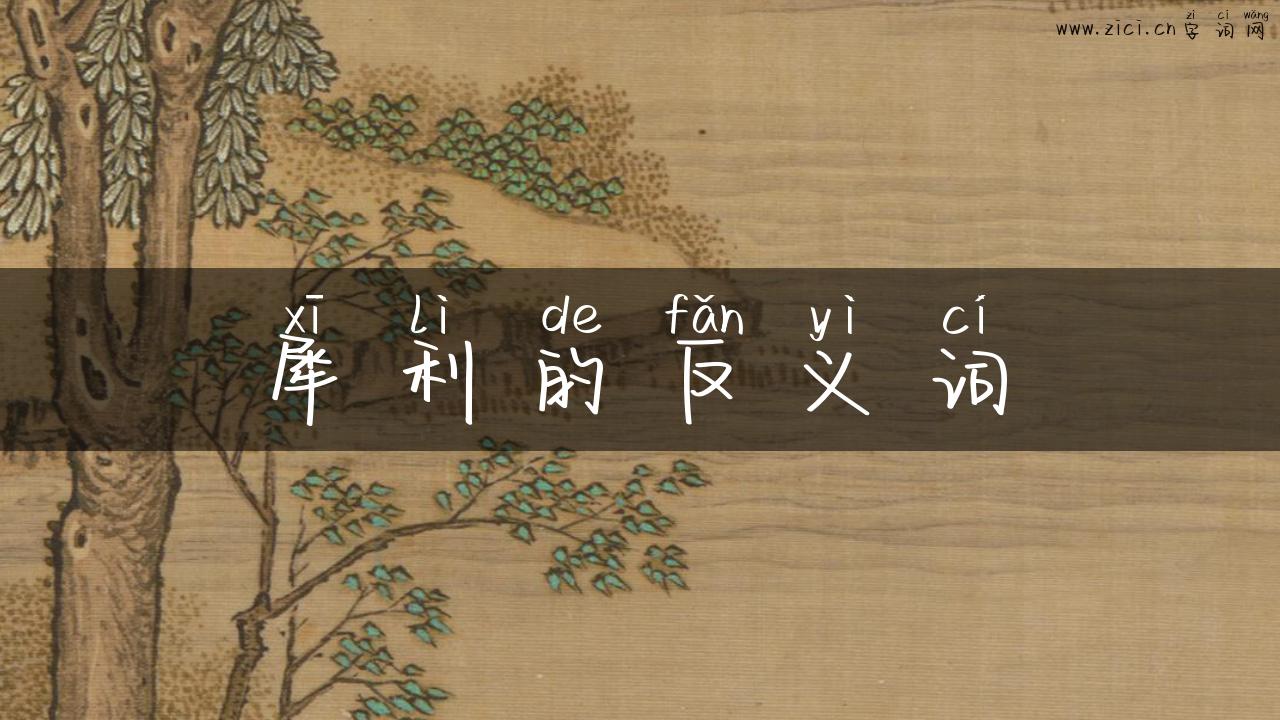 zì cí wǎng
www.zici.cn 字词网
xī lì de fǎn yì cí
犀利的反义词